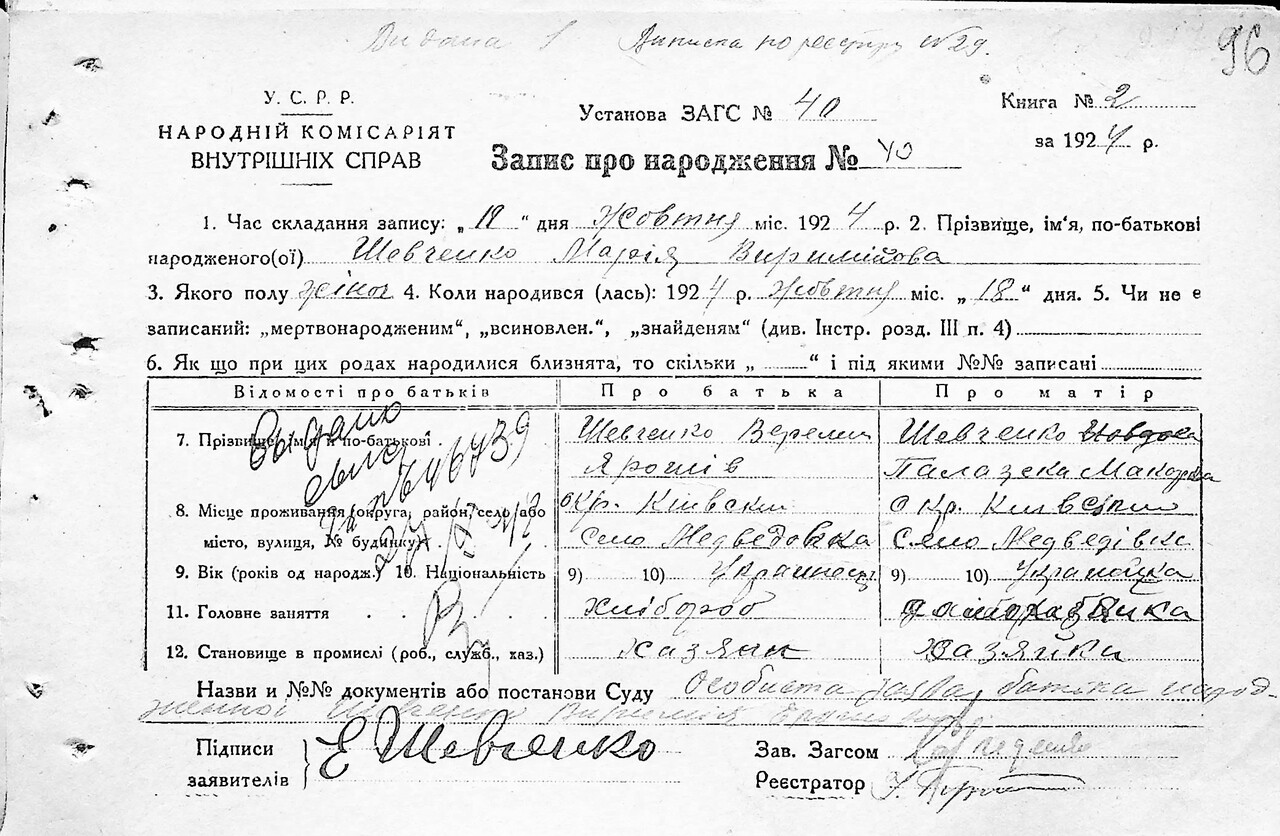 Видана 1 Виписка по реєстру №29.
96
У. С. Р. Р.
НАРОДНІЙ КОМІСАРІЯТ
ВНУТРІШНІХ СПРАВ
Установа ЗАГС № 40
Книга № 2
за 1924 р.
Запис про народження № 40
1. Час складання запису: „ 18 “ дня Жовтня міс. 1924 р. 2. Прізвище, ім'я, по-батькові
народженого(ої) Шевченко Марія
3. Якого полу жіноч 4. Коли народився (лась): 1924 р. Жовтня міс. „ 18 “ дня. 5. Чи не є
записаний: „мертвонародженим“, „всиновлен.“, „знайденям“ (див. Інстр. розд. III п. 4)
6. Як що при цих родах народилися близнята, то скільки „ “ і під якими №№ записані
Відомості про батьків Про батька Про матір
7. Прізвище, ім'я и по-батькові Шевченко Веремій Шевченко
Ярошів Палазека Макорова
8. Місце проживання (округа, район, село або окр. Київски окр. Київский
місто, вулиця, № будинку) Село Медведовка Село Медведівка
9. Вік (років од народж.) 10. Національність 9) 10) Українець 9) 10) Українка
11. Головне заняття хлібороб
12. Становище в промислі (роб., служб., хаз.) хазяин хазяйка
Видано
Назви и №№ документів або постанови Суду Особиста батька народ-
женної Шевченко
Підписи
заявителів
Е Шевченко
Зав. Загсом
Реєстратор